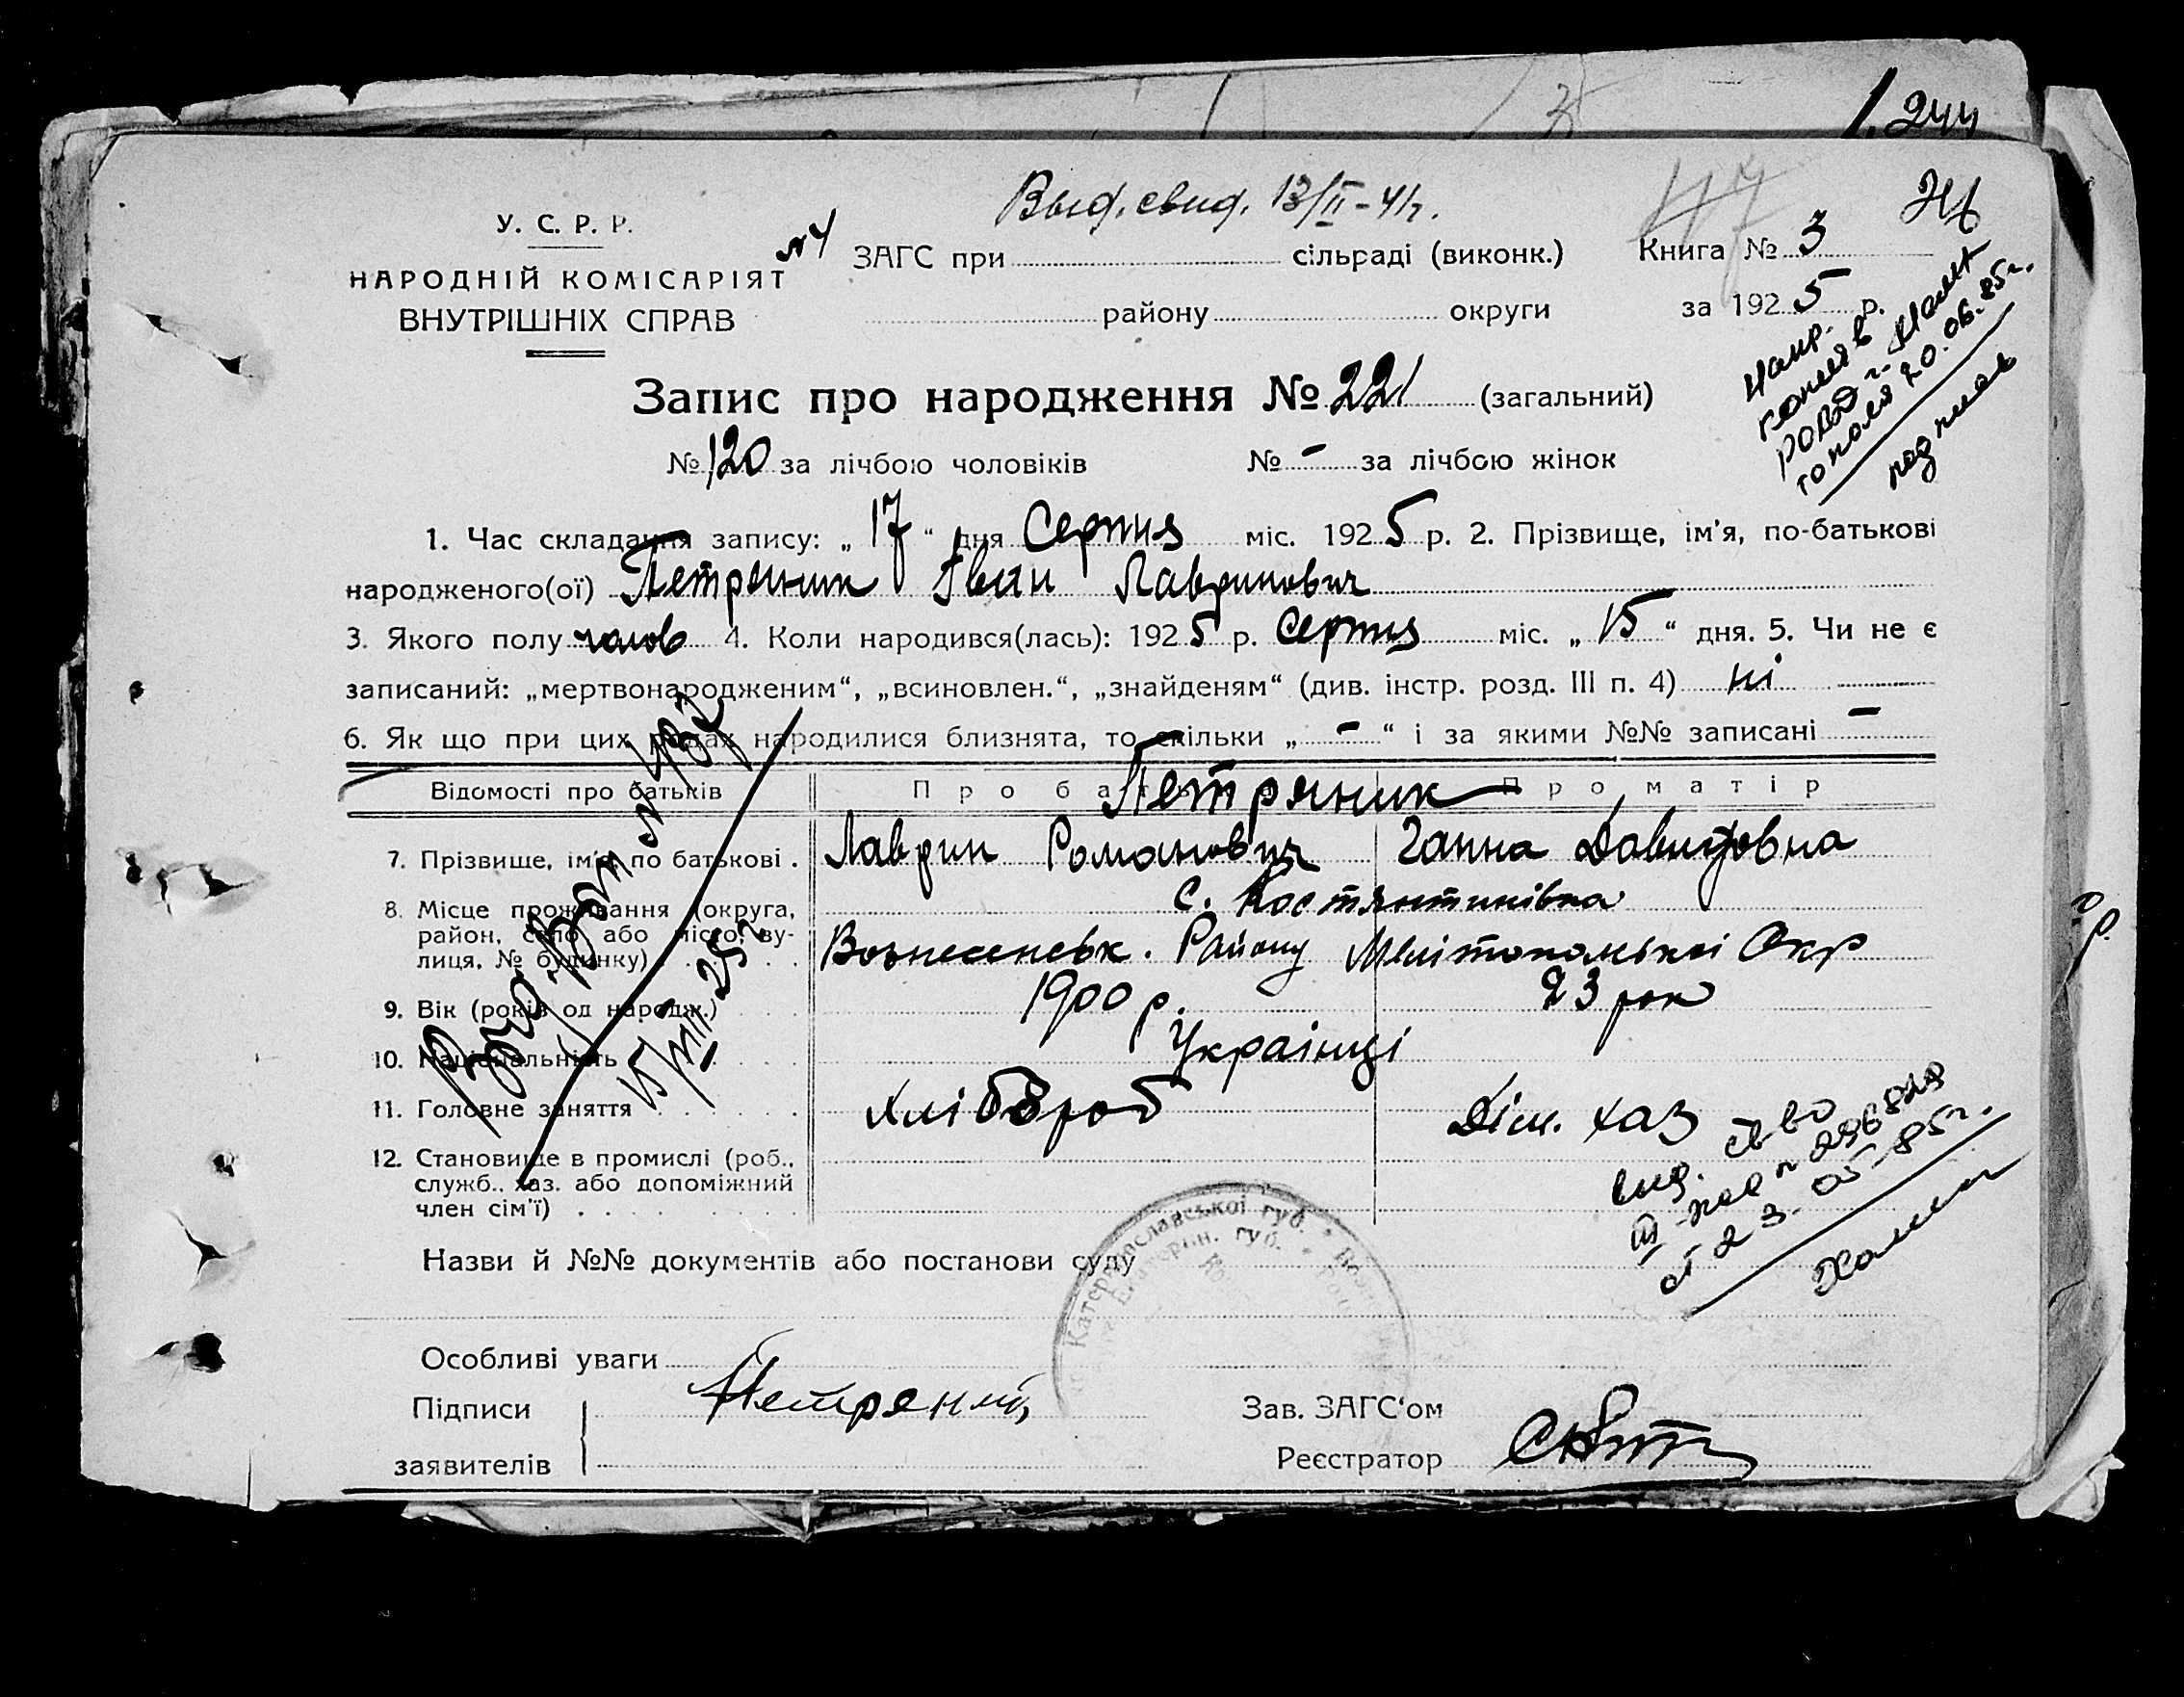 1.244
Выд. свид. 13/II-41г.
У. С. Р. Р.
НАРОДНІЙ КОМІСАРІЯТ
ВНУТРІШНІХ СПРАВ
ЗАГС при сільраді (виконк.)
району округи
Книга № 3
за 1925 р.
Запис про народження № 221 (загальний)
№ 120 за лічбою чоловіків № - за лічбою жінок
1. Час складання запису: „ 17 “ дня Серпня міс. 1925 р. 2. Прізвище, ім'я, по-батькові
народженого(ої) Петряник Іван Лавринович
3. Якого полу чолов 4. Коли народився(лась): 1925 р. Серпня міс. „ 15 “ дня. 5. Чи не є
записаний: „мертвонародженим“, „всиновлен.“, „знайденям“ (див. інстр. розд. III п. 4) ні
6. Як що при цих родах народилися близнята, то скільки „ - “ і за якими №№ записані -
Відомості про батьків Про батька Про матір
Петряник
7. Прізвище, ім'я, по батькові . Лаврин Романович Ганна Давидовна
8. Місце проживання (округа, с. Костянтинівка
район, село або місто, ву-
лиця, № будинку) Вознесенськ. Району Мелітопольскої Окр
9. Вік (років од народж.) 1900 р. 23 рок
10. Національність Українці
11. Головне заняття Хлібороб Дом. хаз
12. Становище в промислі (роб.,
служб., хаз. або допоміжний
член сім'ї)
от 23-05-85г.
Назви й №№ документів або постанови суду
Особливі уваги
Підписи
заявителів Петряник
Зав. ЗАГС'ом
Реєстратор